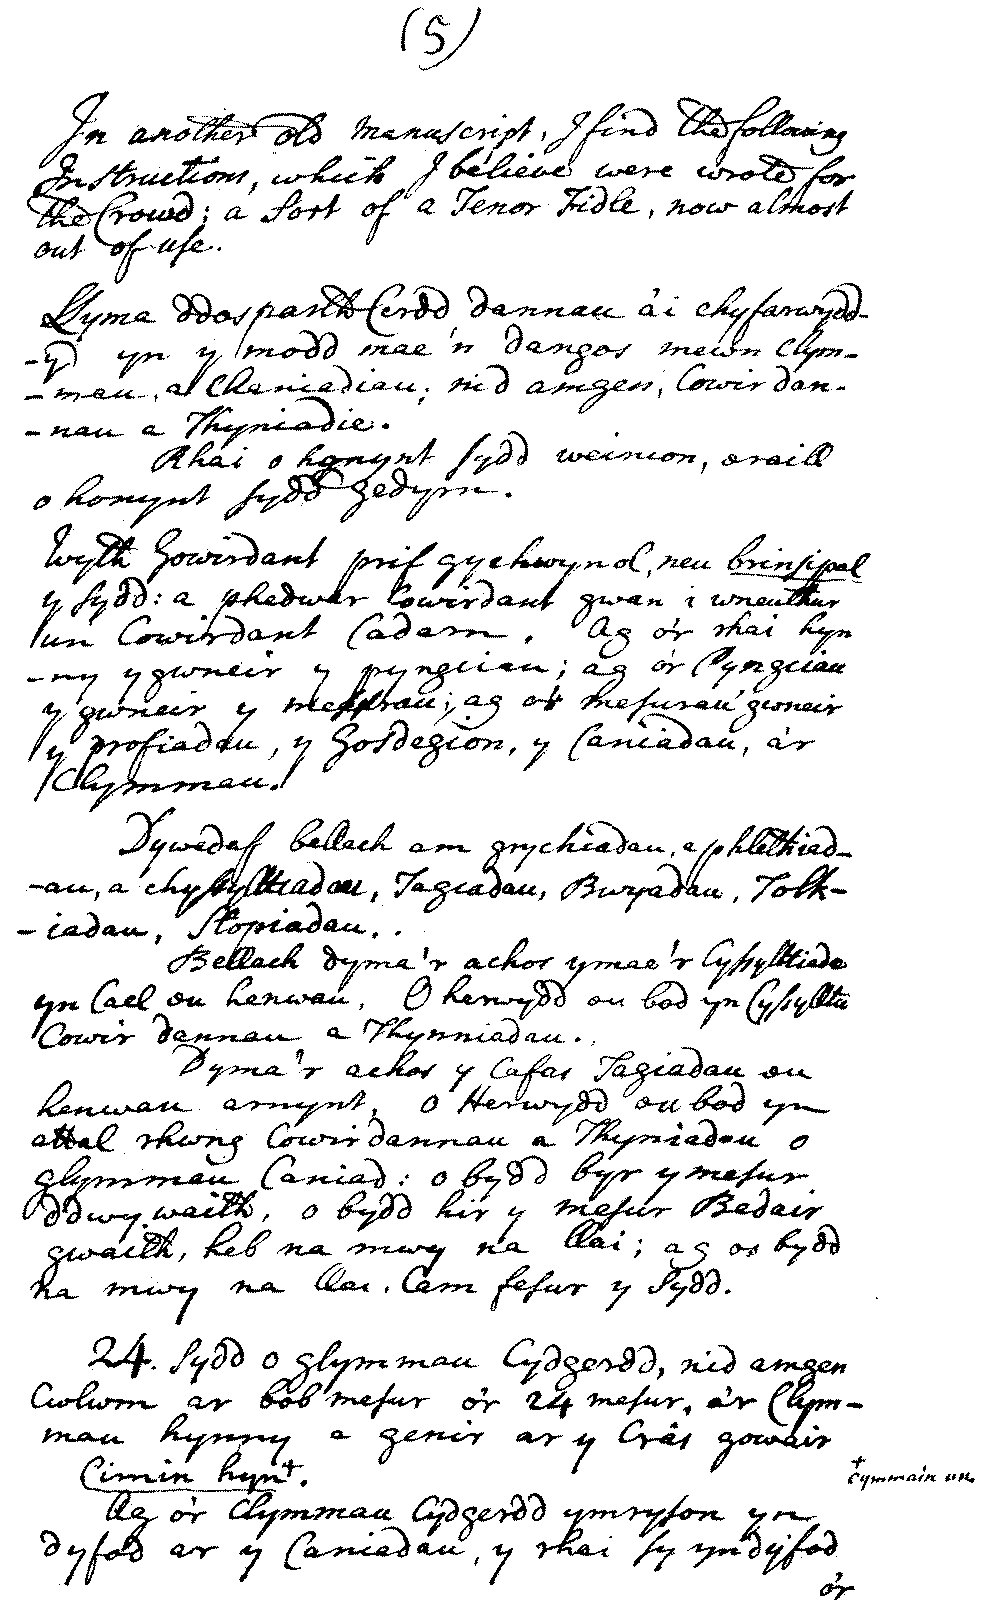 (5)
In another old manuscript, I find the following
Instructions, which I believe were wrote for
the Crowd; a Sort of a Tenor Fidle, now almost
out of use.
Llyma ddosparth Cerdd dannau a'i chyfarwydd-
-yd yn y modd mae'n dangos mewn Clym-
-mau, a Chaniadiau; nid amgen, Cowir dan-
-nau a Thyniadie.
Rhai o honynt sydd weinion, eraill
o honynt sydd gedyrn.
Wyth Gowirdant prif gychwynol, neu brinsipal
y sydd: a phedwar Cowirdant gwan i wneuthur
un Cowirdant Cadarn. Ag o'r rhai hyn
-ny y gwneir y pyngciau; ag o'r Pyngciau
y gwneir y mesurau; ag o'r mesurau gwneir
y profiadau, y Gosdegion, y Caniadau, a'r
Clymmau.
Dywedaf bellach am grychiadau, a phlethiad-
-au, a chysylltiadau, Tagiadau, Bwyadau, Tolk-
-iadau, Stopiadau..
Bellach dyma'r achos ymae'r Cyssylltiade
yn Cael eu henwau, O herwydd eu bod yn Cyssylltu
Cowir dannau a Thynniadau..
Dyma'r achos y Cafas Tagiadau eu
henwau arnynt, o Herwydd eu bod yn
attal rhwng Cowir dannau a Thyniadau o
glymmau Caniad: o bydd byr y mesur
ddwy waith, o bydd hir y mesur Bedair
gwaith, heb na mwy na llai; ag os bydd
na mwy na llai. Cam fesur y Sydd.
24. Sydd o glymmau Cydgerdd, nid amgen
Cwlwm ar bob mesur o'r 24 mesur, a'r Clym-
mau hynny a genir ar y Crâs gowair
Cimin hyn†.
† cymmain un
Ag o'r Clymmau Cydgerdd ymryson yn
dyfod ar y Caniadau, y rhai sy yn dyfod
o'r